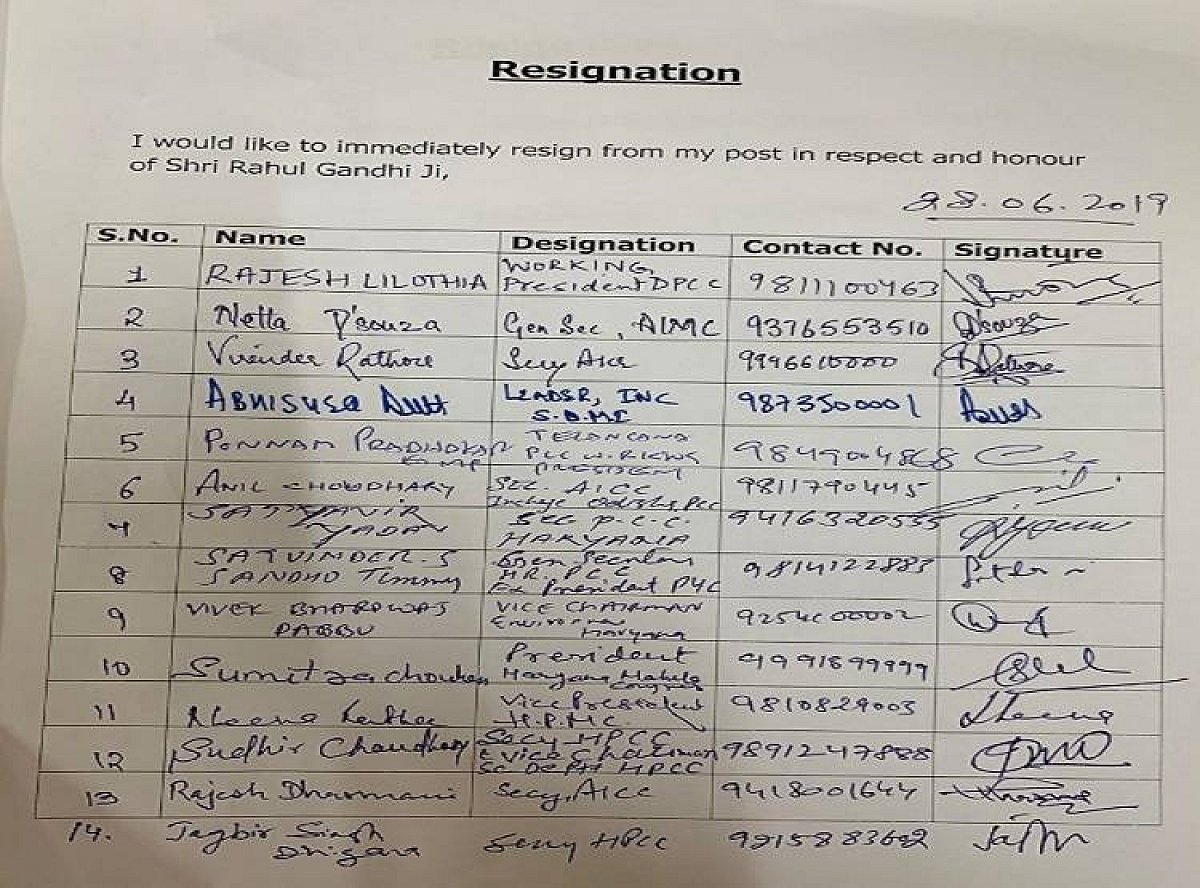 Resignation
I would like to immediately resign from my post in respect and honour
of Shri Rahul Gandhi Ji,
28.06.2019
S.No. Name Designation Contact No. Signature
1 RAJESH LILOTHIA WORKING President DPCC 9811100463
2 Netta D'souza Gen Sec, AIMC 9376553510 D'souza
3 Virender Rathore Secy AICC 9996610000
4 ABHISHEK Dutt LEADER, INC 9873500001
5 PONNAM PRADHAKAR TELANGANA PCC WORKING PRESIDENT 9849004868
6 ANIL CHOWDHARY SEC. AICC Incharge Odisha PCC 9811790445
7 SATYAVIR YADAV SEC P.C.C. HARYANA 9416320535
8 SATVINDER.S SANDHU Timmy Gen Secretary HR. PCC Ex President PYC 9814122883
9 VIVEK BHARDWAJ PABBU VICE CHAIRMAN Haryana
10 Sumitra chouhan President Haryana Mahila Congress 9991899999
11 Vice President H.P.M.C. 9810829003
12 Sudhir Chaudhary Secy HPCC & Vice Chairman SC Deptt HPCC 9891247888
13 Rajesh Dharmani Secy, AICC 9418001644
14. Jagbir Singh Secy HPCC